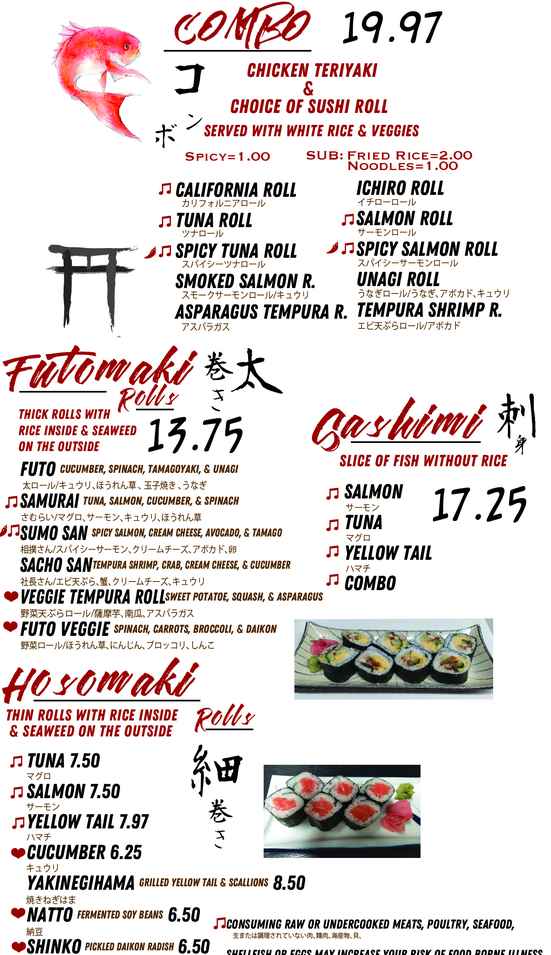 COMBO 19.97
コンボ
CHICKEN TERIYAKI
&
CHOICE OF SUSHI ROLL
SERVED WITH WHITE RICE & VEGGIES
SPICY=1.00
SUB: FRIED RICE=2.00
NOODLES=1.00
CALIFORNIA ROLL
カリフォルニアロール
TUNA ROLL
ツナロール
SPICY TUNA ROLL
スパイシーツナロール
SMOKED SALMON R.
スモークサーモンロール/キュウリ
ASPARAGUS TEMPURA R.
アスパラガス
ICHIRO ROLL
イチローロール
SALMON ROLL
サーモンロール
SPICY SALMON ROLL
スパイシーサーモンロール
UNAGI ROLL
うなぎロール/うなぎ、アボカド、キュウリ
TEMPURA SHRIMP R.
エビ天ぷらロール/アボカド
FUTOMAKI
ROLLS
太巻き
THICK ROLLS WITH
RICE INSIDE & SEAWEED
ON THE OUTSIDE
13.75
FUTO CUCUMBER, SPINACH, TAMAGOYAKI, & UNAGI
太ロール/キュウリ、ほうれん草、玉子焼き、うなぎ
SAMURAI TUNA, SALMON, CUCUMBER, & SPINACH
さむらい/マグロ、サーモン、キュウリ、ほうれん草
SUMO SAN SPICY SALMON, CREAM CHEESE, AVOCADO, & TAMAGO
相撲さん/スパイシーサーモン、クリームチーズ、アボカド、卵
SACHO SAN TEMPURA SHRIMP, CRAB, CREAM CHEESE, & CUCUMBER
社長さん/エビ天ぷら、蟹、クリームチーズ、キュウリ
VEGGIE TEMPURA ROLL SWEET POTATOE, SQUASH, & ASPARAGUS
野菜天ぷらロール/薩摩芋、南瓜、アスパラガス
FUTO VEGGIE SPINACH, CARROTS, BROCCOLI, & DAIKON
野菜ロール/ほうれん草、にんじん、ブロッコリ、しんこ
SASHIMI
刺身
SLICE OF FISH WITHOUT RICE
17.25
SALMON
サーモン
TUNA
マグロ
YELLOW TAIL
ハマチ
COMBO
HOSOMAKI
ROLLS
細巻き
THIN ROLLS WITH RICE INSIDE
& SEAWEED ON THE OUTSIDE
TUNA 7.50
マグロ
SALMON 7.50
サーモン
YELLOW TAIL 7.97
ハマチ
CUCUMBER 6.25
キュウリ
YAKINEGIHAMA GRILLED YELLOW TAIL & SCALLIONS 8.50
焼きねぎはま
NATTO FERMENTED SOY BEANS 6.50
納豆
SHINKO PICKLED DAIKON RADISH 6.50
CONSUMING RAW OR UNDERCOOKED MEATS, POULTRY, SEAFOOD,
生または調理されていない肉、鶏肉、海産物、貝、
SHELLFISH OR EGGS MAY INCREASE YOUR RISK OF FOOD BORNE ILLNESS